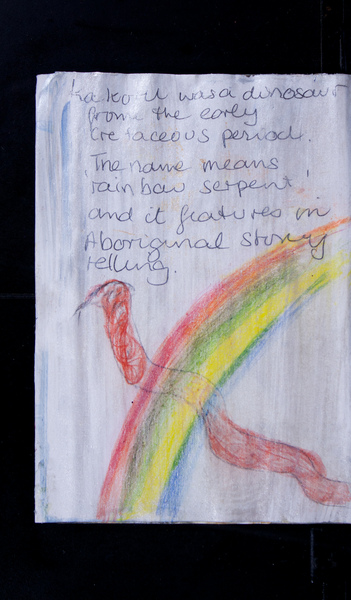 was a dinosaur
from the early
Cretaceous period.
'The name means
rain bow serpent'
and it features in
Aboriginal story
telling.